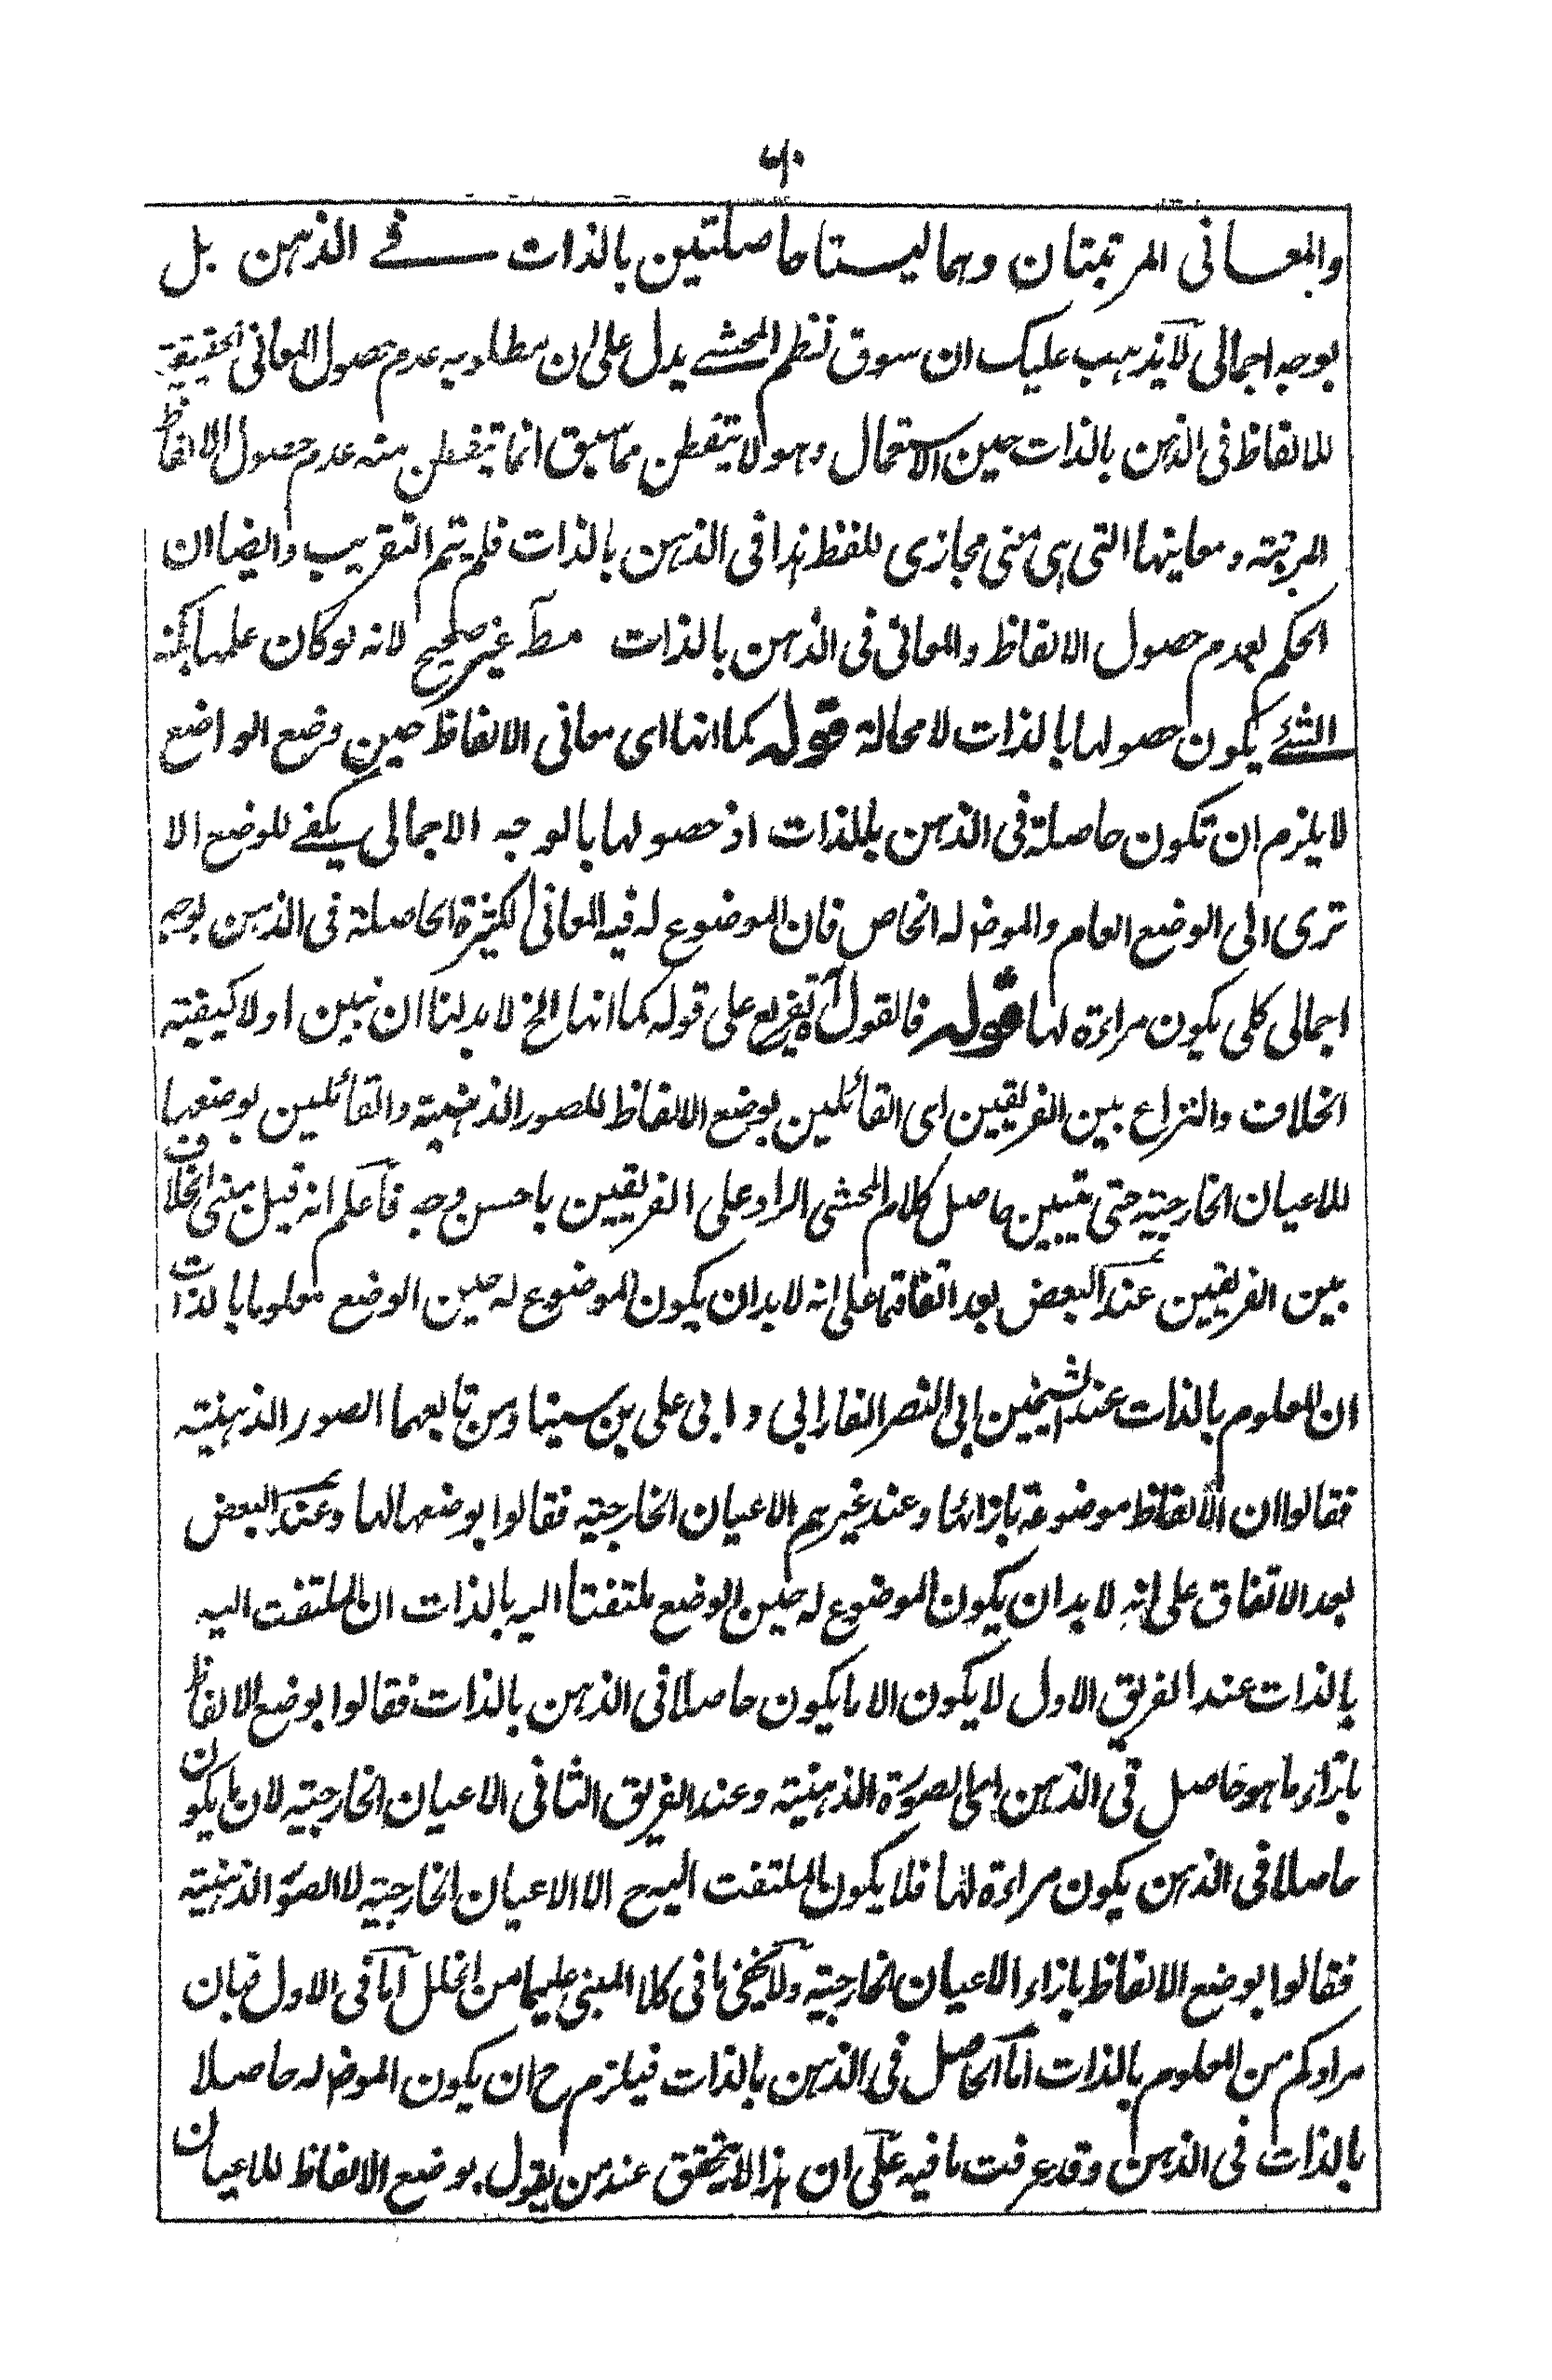 ٦٠
والمعانى المرتبتان وهما ليستا حاصلتين بالذات فے الذهن بل
بوجه اجمالى لا يذهب عليك ان سوق نظم المحشے يدل على ان مطلوبه عدم حصول المعانى الحقيقية
للالفاظ فى الذهن بالذات حين الاستعمال وهو لا يتفطن مما سبق انما يتفطن منه عدم حصول الالفاظ
المرتبة ومعاينها التى هى معنى مجازى للفظ هذا فى الذهن بالذات فلم يتم التقريب وايضا ان
الحكم بعدم حصول الالفاظ والمعانى فى الذهن بالذات مطآ غير صحيح لانه لو كان علمها بكنه
الشئے يكون حصولها بالذات لا محالة قوله كما انها اى معانى الالفاظ حين وضع الواضع
لا يلزم ان تكون حاصلة فى الذهن بالذات اذ حصولها بالوجه الاجمالى يكفے للوضع الا
ترى الى الوضع العام والموض له الخاص فان الموضوع له فيه المعانى الكثيرة الحاصلة فى الذهن بوجه
اجمالى كلى يكون مراءة لها قوله فالقول آه تفريع على قوله كما انها الخ لا بد لنا ان نبين اولا كيفية
الخلاف والنزاع بين الفريقين اى القائلين بوضع الالفاظ للصور الذهنية والقائلين بوضعها
للاعيان الخارجية حتى يتبين حاصل كلام المحشى الراد على الفريقين باحسن وجه فآعلم انه قيل مبنى الخلاف
بين الفريقين عند البعض بعد اتفاقهما على انه لا بد ان يكون الموضوع له حين الوضع معلوما بالذات
ان المعلوم بالذات عند الشيخين ابى النصر الفارابى وابى على بن سينا ومن تابعهما الصور الذهنية
فقالوا ان الالفاظ موضوعة بازائها وعند غيرهم الاعيان الخارجية فقالوا بوضعها لها وعند البعض
بعد الاتفاق على انه لا بد ان يكون الموضوع له حين الوضع ملتفتا اليه بالذات ان الملتفت اليه
بالذات عند الفريق الاول لا يكون الا ما يكون حاصلا فى الذهن بالذات فقالوا بوضع الالفاظ
بازاء ما هو حاصل فى الذهن اى الصورة الذهنية وعند الفريق الثانى الاعيان الخارجية لان ما يكون
حاصلا فى الذهن يكون مراءة لها فلا يكون الملتفت اليه ح الا الاعيان الخارجية لا الصور الذهنية
فقالوا بوضع الالفاظ بازاء الاعيان الخارجية ولا يخفى ما فى كلا المبنى عليهما من الخلل آما فى الاول فبان
مرادكم من المعلوم بالذات اما الحاصل فى الذهن بالذات فيلزم ح ان يكون الموض له حاصلا
بالذات فى الذهن وقد عرفت ما فيه على ان هذا لا يتحقق عند من يقول بوضع الالفاظ للاعيان